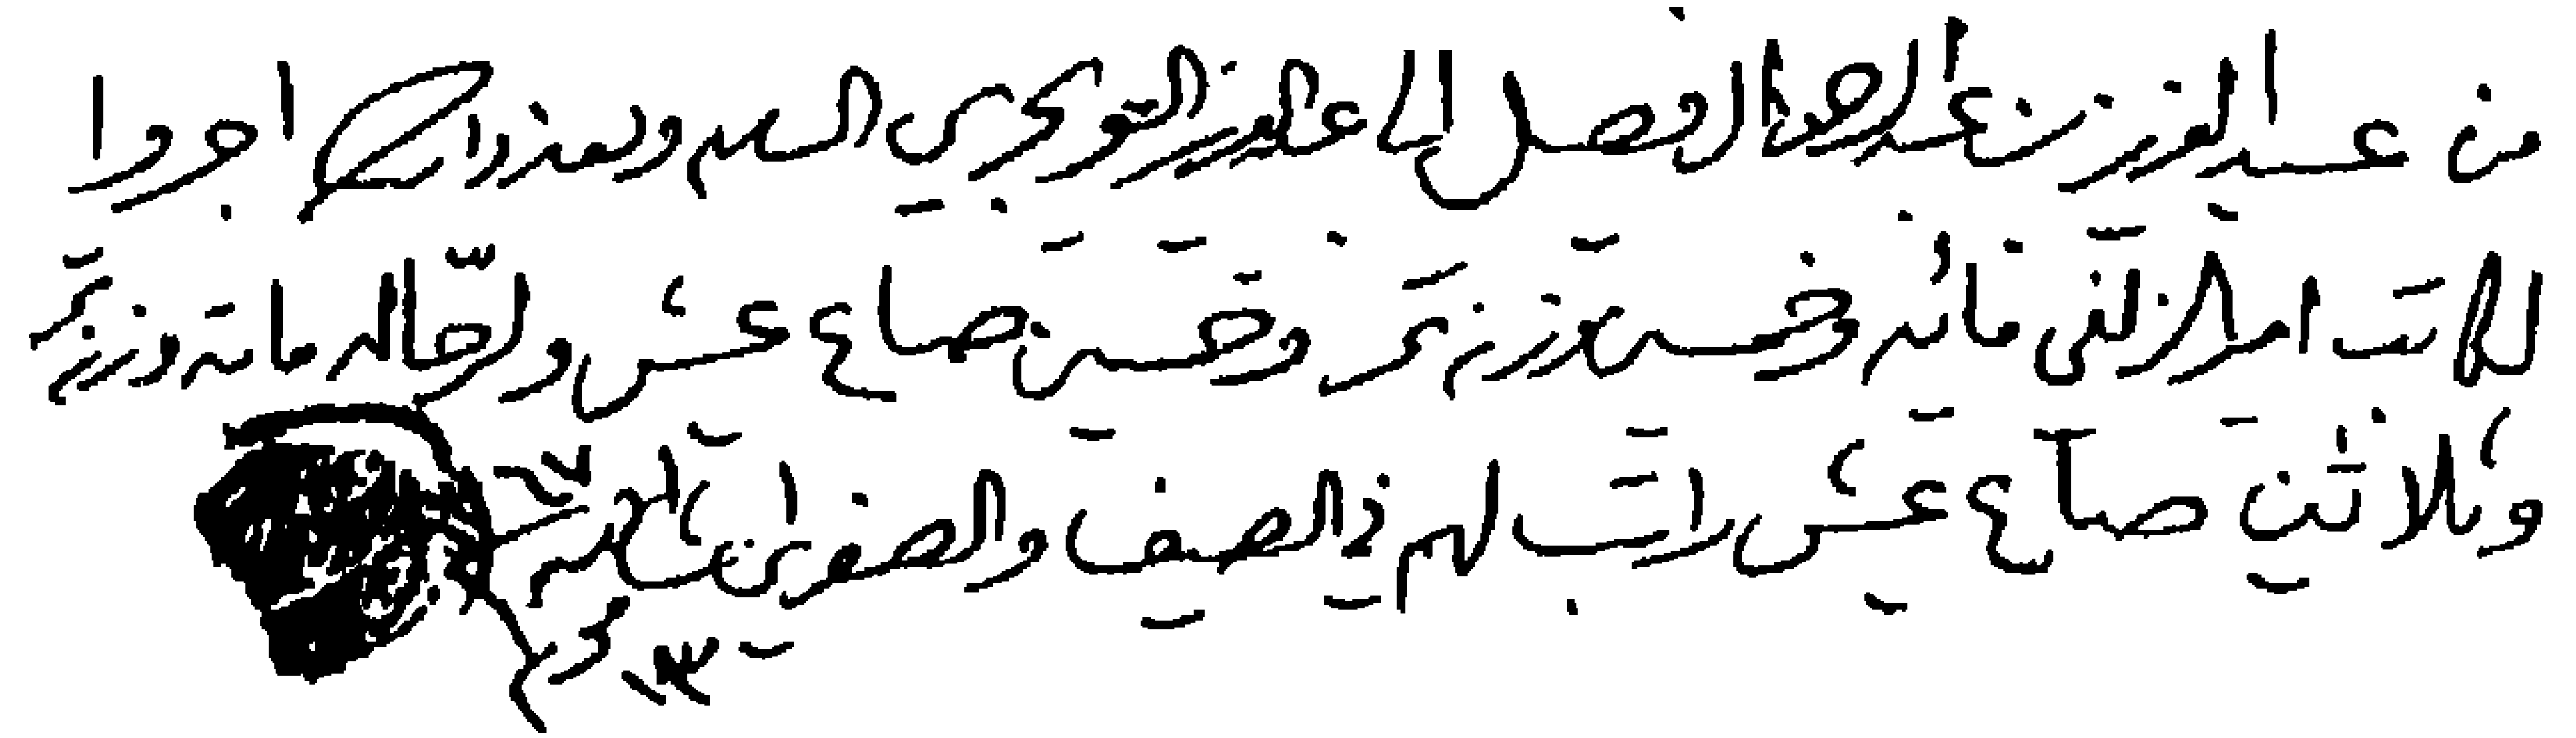 من عبد العزيز بن عبد الرحمن ال فيصل الى عبد العزيز التويجري السلام وبعد اجروا
لكاتب امير الزلفي مائة وخمسين وزنه تمر وخمسين صاع عيش ولرجاله مائة وزنة تمر
وثلاثين صاع عيش راتب لهم في الصيف والصفري
محرم